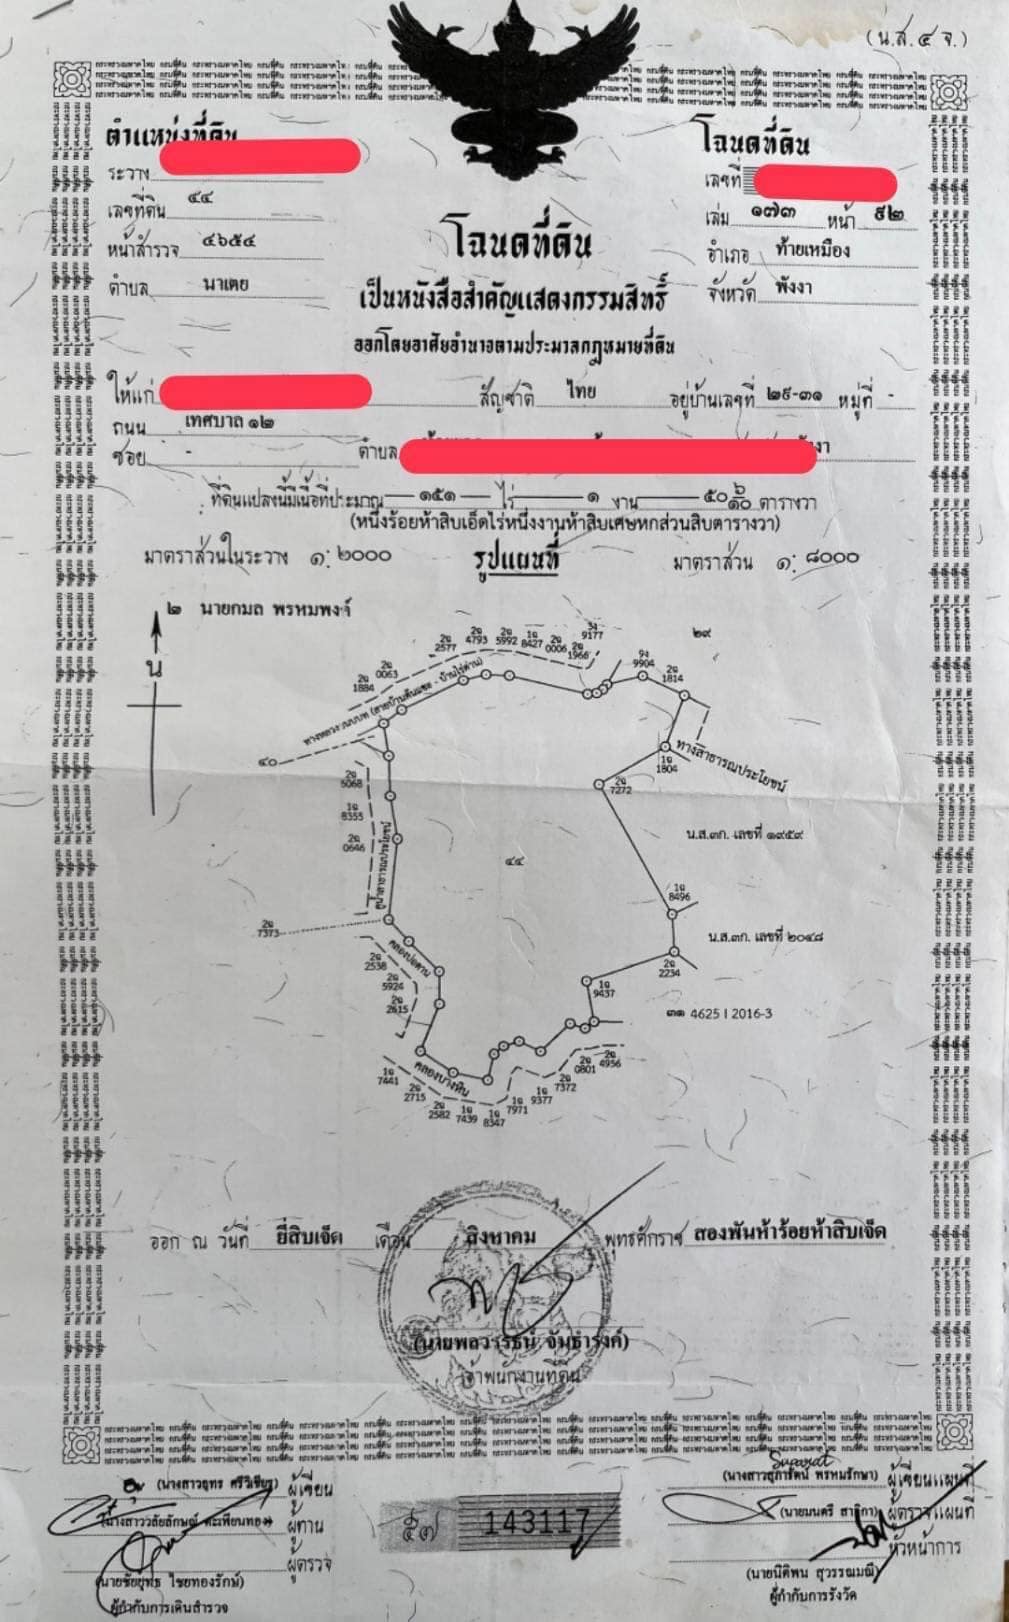 (น.ส.๔ จ.)
ตำแหน่งที่ดิน
ระวาง
เลขที่ดิน ๔๔
หน้าสำรวจ ๔๖๕๔
ตำบล นาเตย
โฉนดที่ดิน
เลขที่
เล่ม ๑๗๓ หน้า ๙๒
อำเภอ ท้ายเหมือง
จังหวัด พังงา
โฉนดที่ดิน
เป็นหนังสือสำคัญแสดงกรรมสิทธิ์
ออกโดยอาศัยอำนาจตามประมวลกฎหมายที่ดิน
ให้แก่ สัญชาติ ไทย อยู่บ้านเลขที่ ๒๙-๓๑ หมู่ที่ -
ถนน เทศบาล ๑๒
ซอย - ตำบล
ที่ดินแปลงนี้มีเนื้อที่ประมาณ ๑๕๑ ไร่ ๑ งาน ๕๐ ๖/๑๐ ตารางวา
(หนึ่งร้อยห้าสิบเอ็ดไร่หนึ่งงานห้าสิบเศษหกส่วนสิบตารางวา)
มาตราส่วนในระวาง ๑:๒๐๐๐ รูปแผนที่ มาตราส่วน ๑:๘๐๐๐
๒ นายกมล พรหมพงจ์
น
๒๙
2ฉ 1884
2ฉ 0063
2ฉ 2577
2ฉ 4793
2ฉ 5992
1ฉ 8427
2ฉ 0006
2ฉ 1966
9177
9904
2ฉ 1814
ทางสาธารณประโยชน์
1ฉ 1804
2ฉ 7272
๔๐
2ฉ 5068
1ฉ 8355
2ฉ 0646
คูน้ำสาธารณประโยชน์
๔๔
น.ส.๓ก. เลขที่ ๑๙๕๙
1ฉ 8496
น.ส.๓ก. เลขที่ ๒๐๔๘
2ฉ 2234
2ฉ 7373
2ฉ 2538
2ฉ 5924
2ฉ 2615
1ฉ 9437
๓๑ 4625 I 2016-3
คลองบางหิน
1ฉ 7441
2ฉ 2715
2ฉ 2582
1ฉ 7439
1ฉ 8347
1ฉ 7971
1ฉ 9377
2ฉ 7372
2ฉ 0801
2ฉ 4956
ออก ณ วันที่ ยี่สิบเจ็ด เดือน สิงหาคม พุทธศักราช สองพันห้าร้อยห้าสิบเจ็ด
เจ้าพนักงานที่ดิน
ผู้เขียน
ผู้ทาน
ผู้ตรวจ
(นายชัยยุทธ ไชยทองรักษ์)
ผู้กำกับการเดินสำรวจ
๕๗ 143117
Suparat
(นางสาวสุภารัตน์ พรหมรักษา) ผู้เขียนแผนที่
(นายมนตรี สาลิกา) ผู้ตรวจแผนที่
หัวหน้าการ
(นายนิติพน สุวรรณมณี)
ผู้กำกับการรังวัด